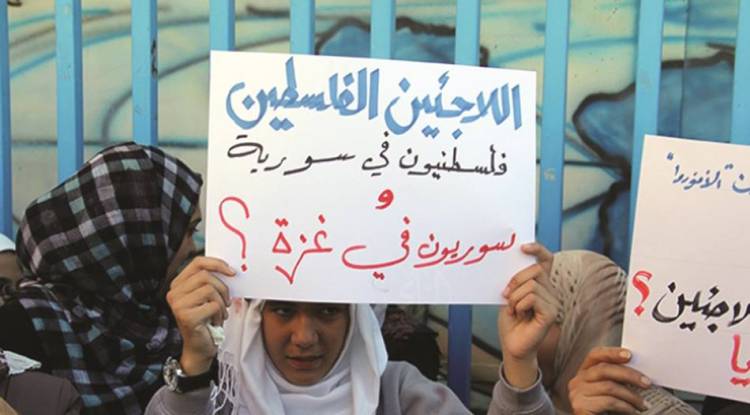 اللاجئين الفلسطين
فلسطنيون في سورية
و
سوريون في غزة ؟
"الأنوروا"
لاجئين ؟
يا